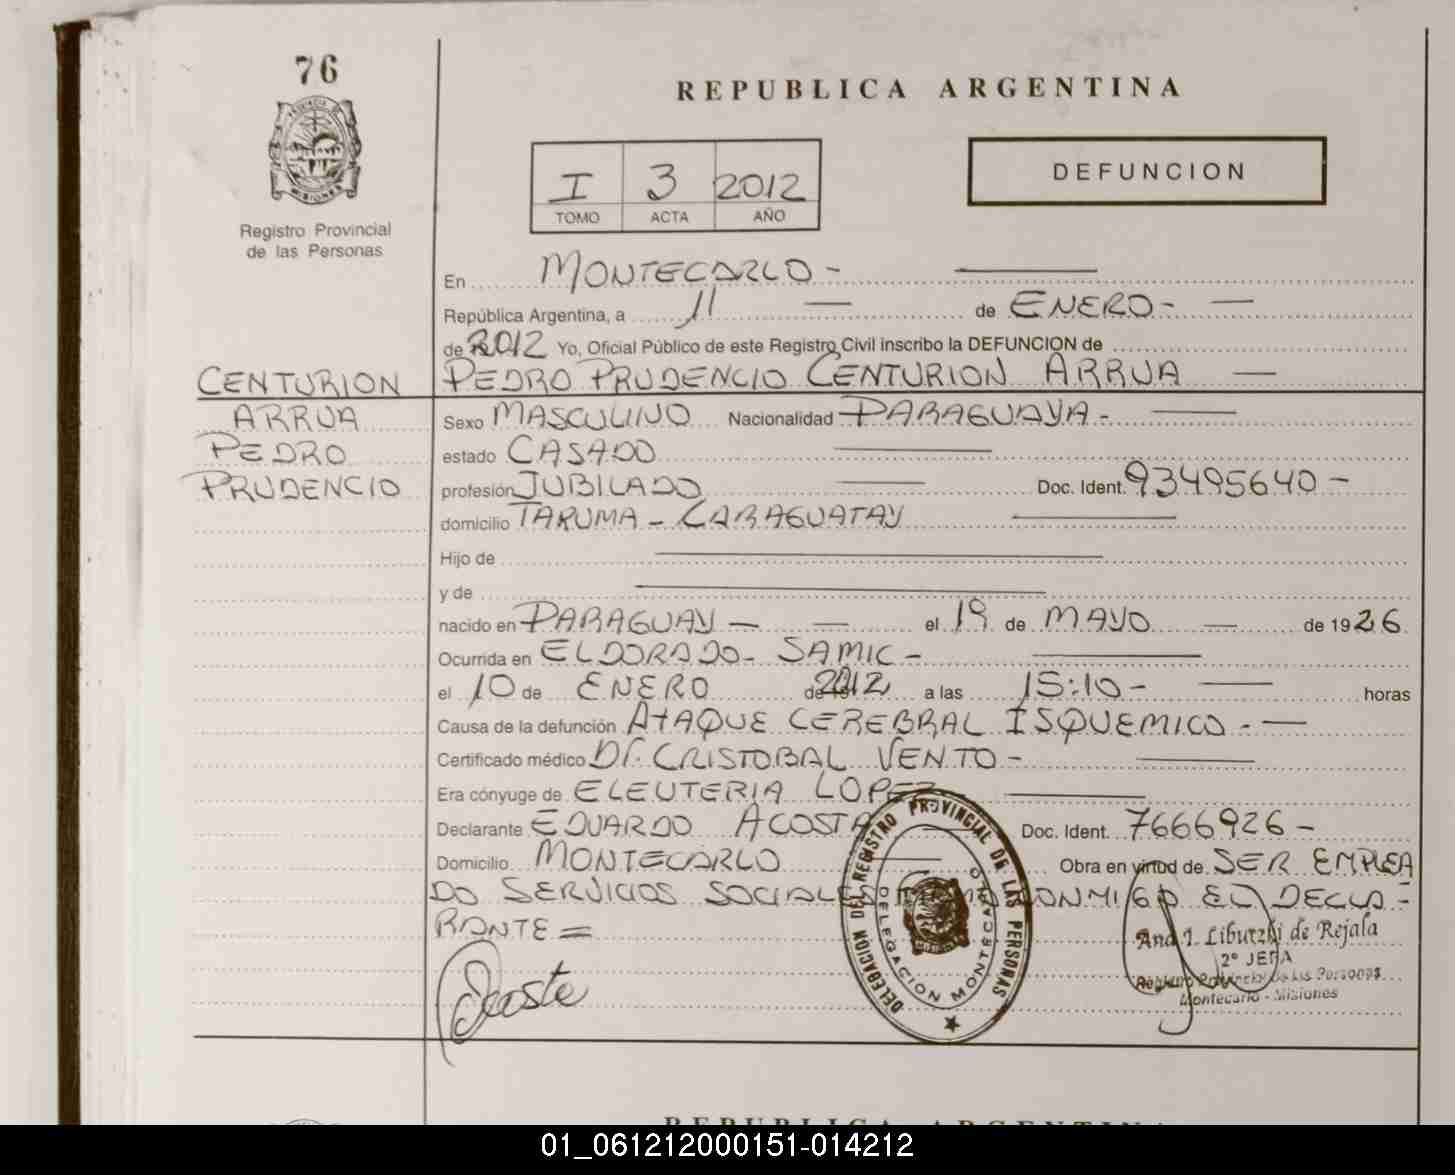 76
REPUBLICA ARGENTINA
MISIONES
Registro Provincial
de las Personas
I 3 2012
TOMO ACTA AÑO
DEFUNCION
En MONTECARLO -
República Argentina, a 11 de ENERO -
de 2012 Yo, Oficial Público de este Registro Civil inscribo la DEFUNCION de
PEDRO PRUDENCIO CENTURION ARRUA
CENTURION
ARRUA
PEDRO
PRUDENCIO
Sexo MASCULINO Nacionalidad PARAGUAYA -
estado CASADO
profesión JUBILADO Doc. Ident. 93495640 -
domicilio TARUMA - CARAGUATAY
Hijo de
y de
nacido en PARAGUAY - el 19 de MAYO de 1926
Ocurrida en ELDORADO - SAMIC -
el 10 de ENERO de 2012 a las 15:10 - horas
Causa de la defunción ATAQUE CEREBRAL ISQUEMICO -
Certificado médico Dr. CRISTOBAL VENTO -
Era cónyuge de ELEUTERIA LOPEZ
Declarante EDUARDO ACOSTA Doc. Ident. 7666926 -
Domicilio MONTECARLO Obra en virtud de SER EMPLEA
DO SERVICIOS SOCIALES CONMIGO EL DECLA-
RANTE =
Acosta
DELEGACION DEL REGISTRO PROVINCIAL DE LAS PERSONAS
DELEGACION MONTECARLO
Ana I. Libutzki de Rejala
2° JEFA
Registro Provincial de las Personas
Montecarlo - Misiones
REPUBLICA ARGENTINA
01_061212000151-014212